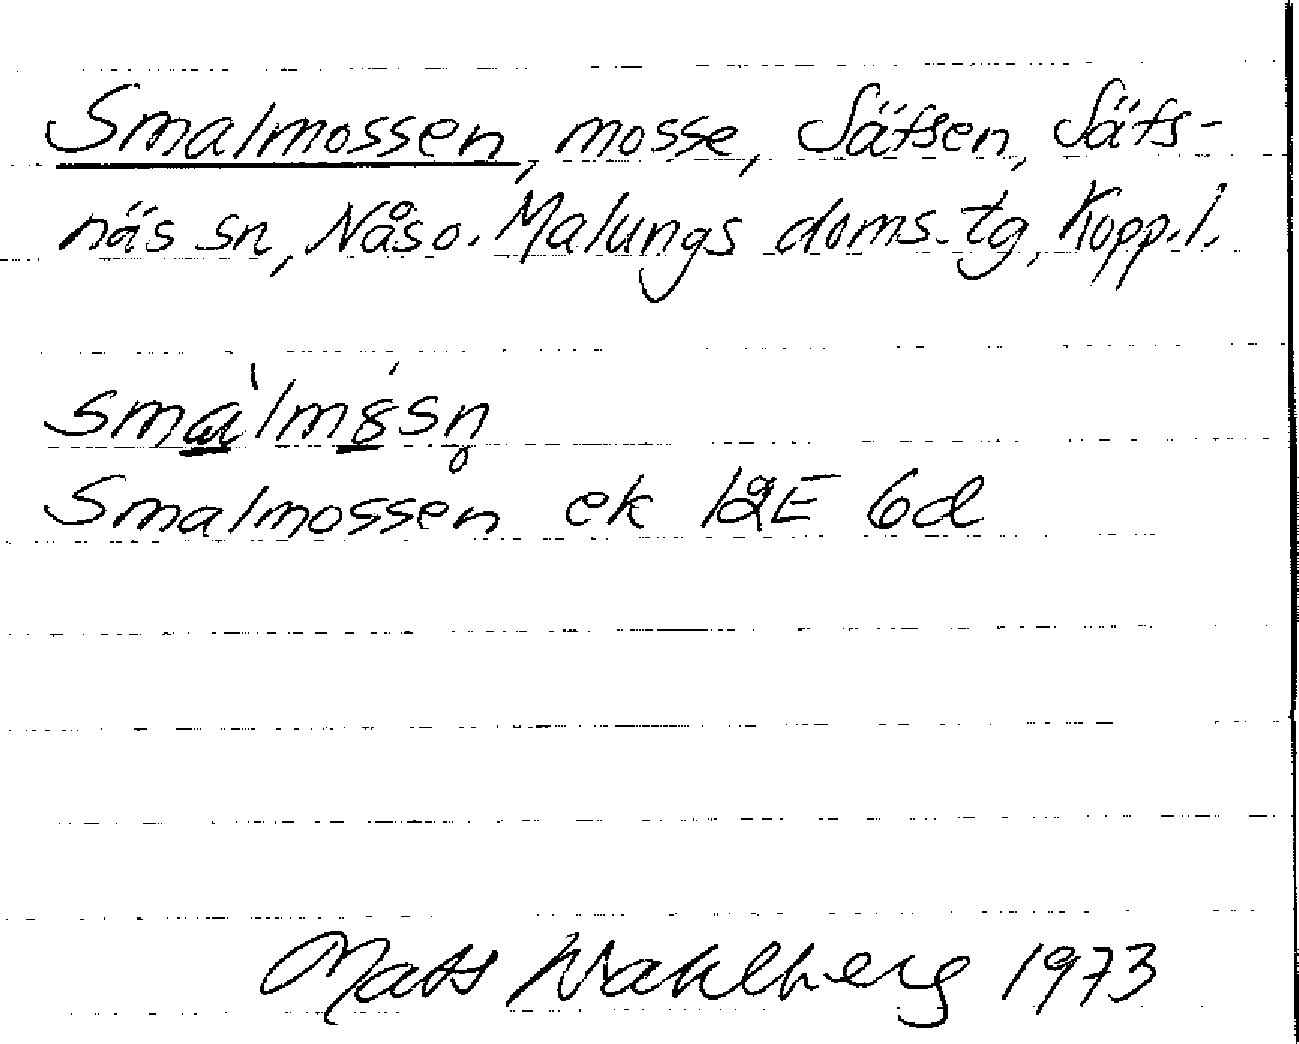 Smalmossen, mosse, Säfsen, Säfs-
näs sn, Nås o. Malungs doms. tg, Kopp. l.
smàlmósn̥
Smalmossen ek 12E 6d
Mats Wahlberg 1973